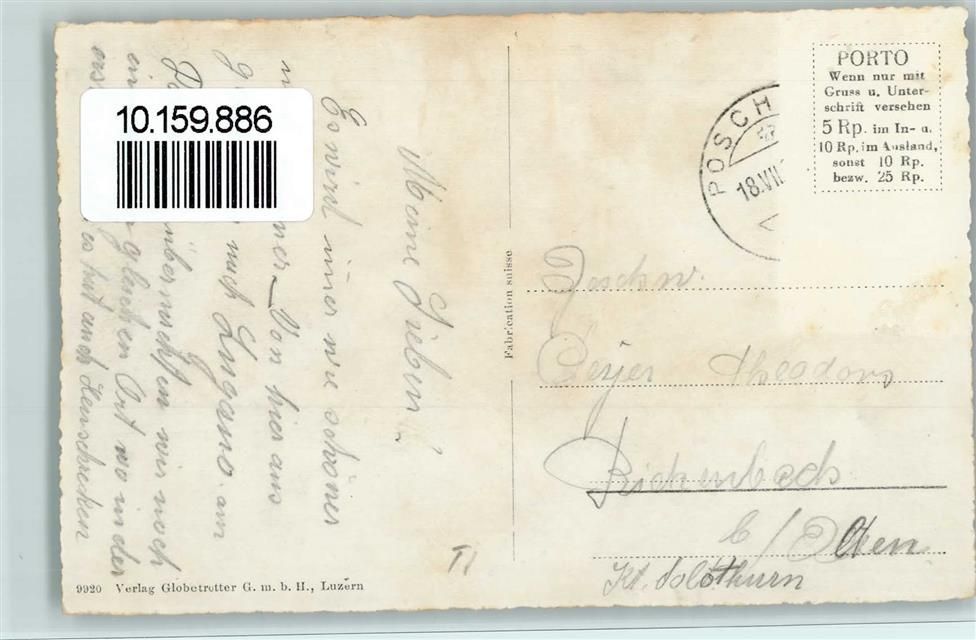 10.159.886
Meine Lieben!
Es wird immer wie schöner
Von hier aus
nach Lugano. am
übernachten wir noch
gleichen Ort wo in der
es hat auch Heuschrecken
9920 Verlag Globetrotter G. m. b. H., Luzern
Fabrication suisse
POSCH
18.VII
PORTO
Wenn nur mit
Gruss u. Unter-
schrift versehen
5 Rp. im In- u.
10 Rp. im Ausland,
sonst 10 Rp.
bezw. 25 Rp.
Geschw.
Theodors
Rickenbach
b/Olten
Kt. Solothurn
TI